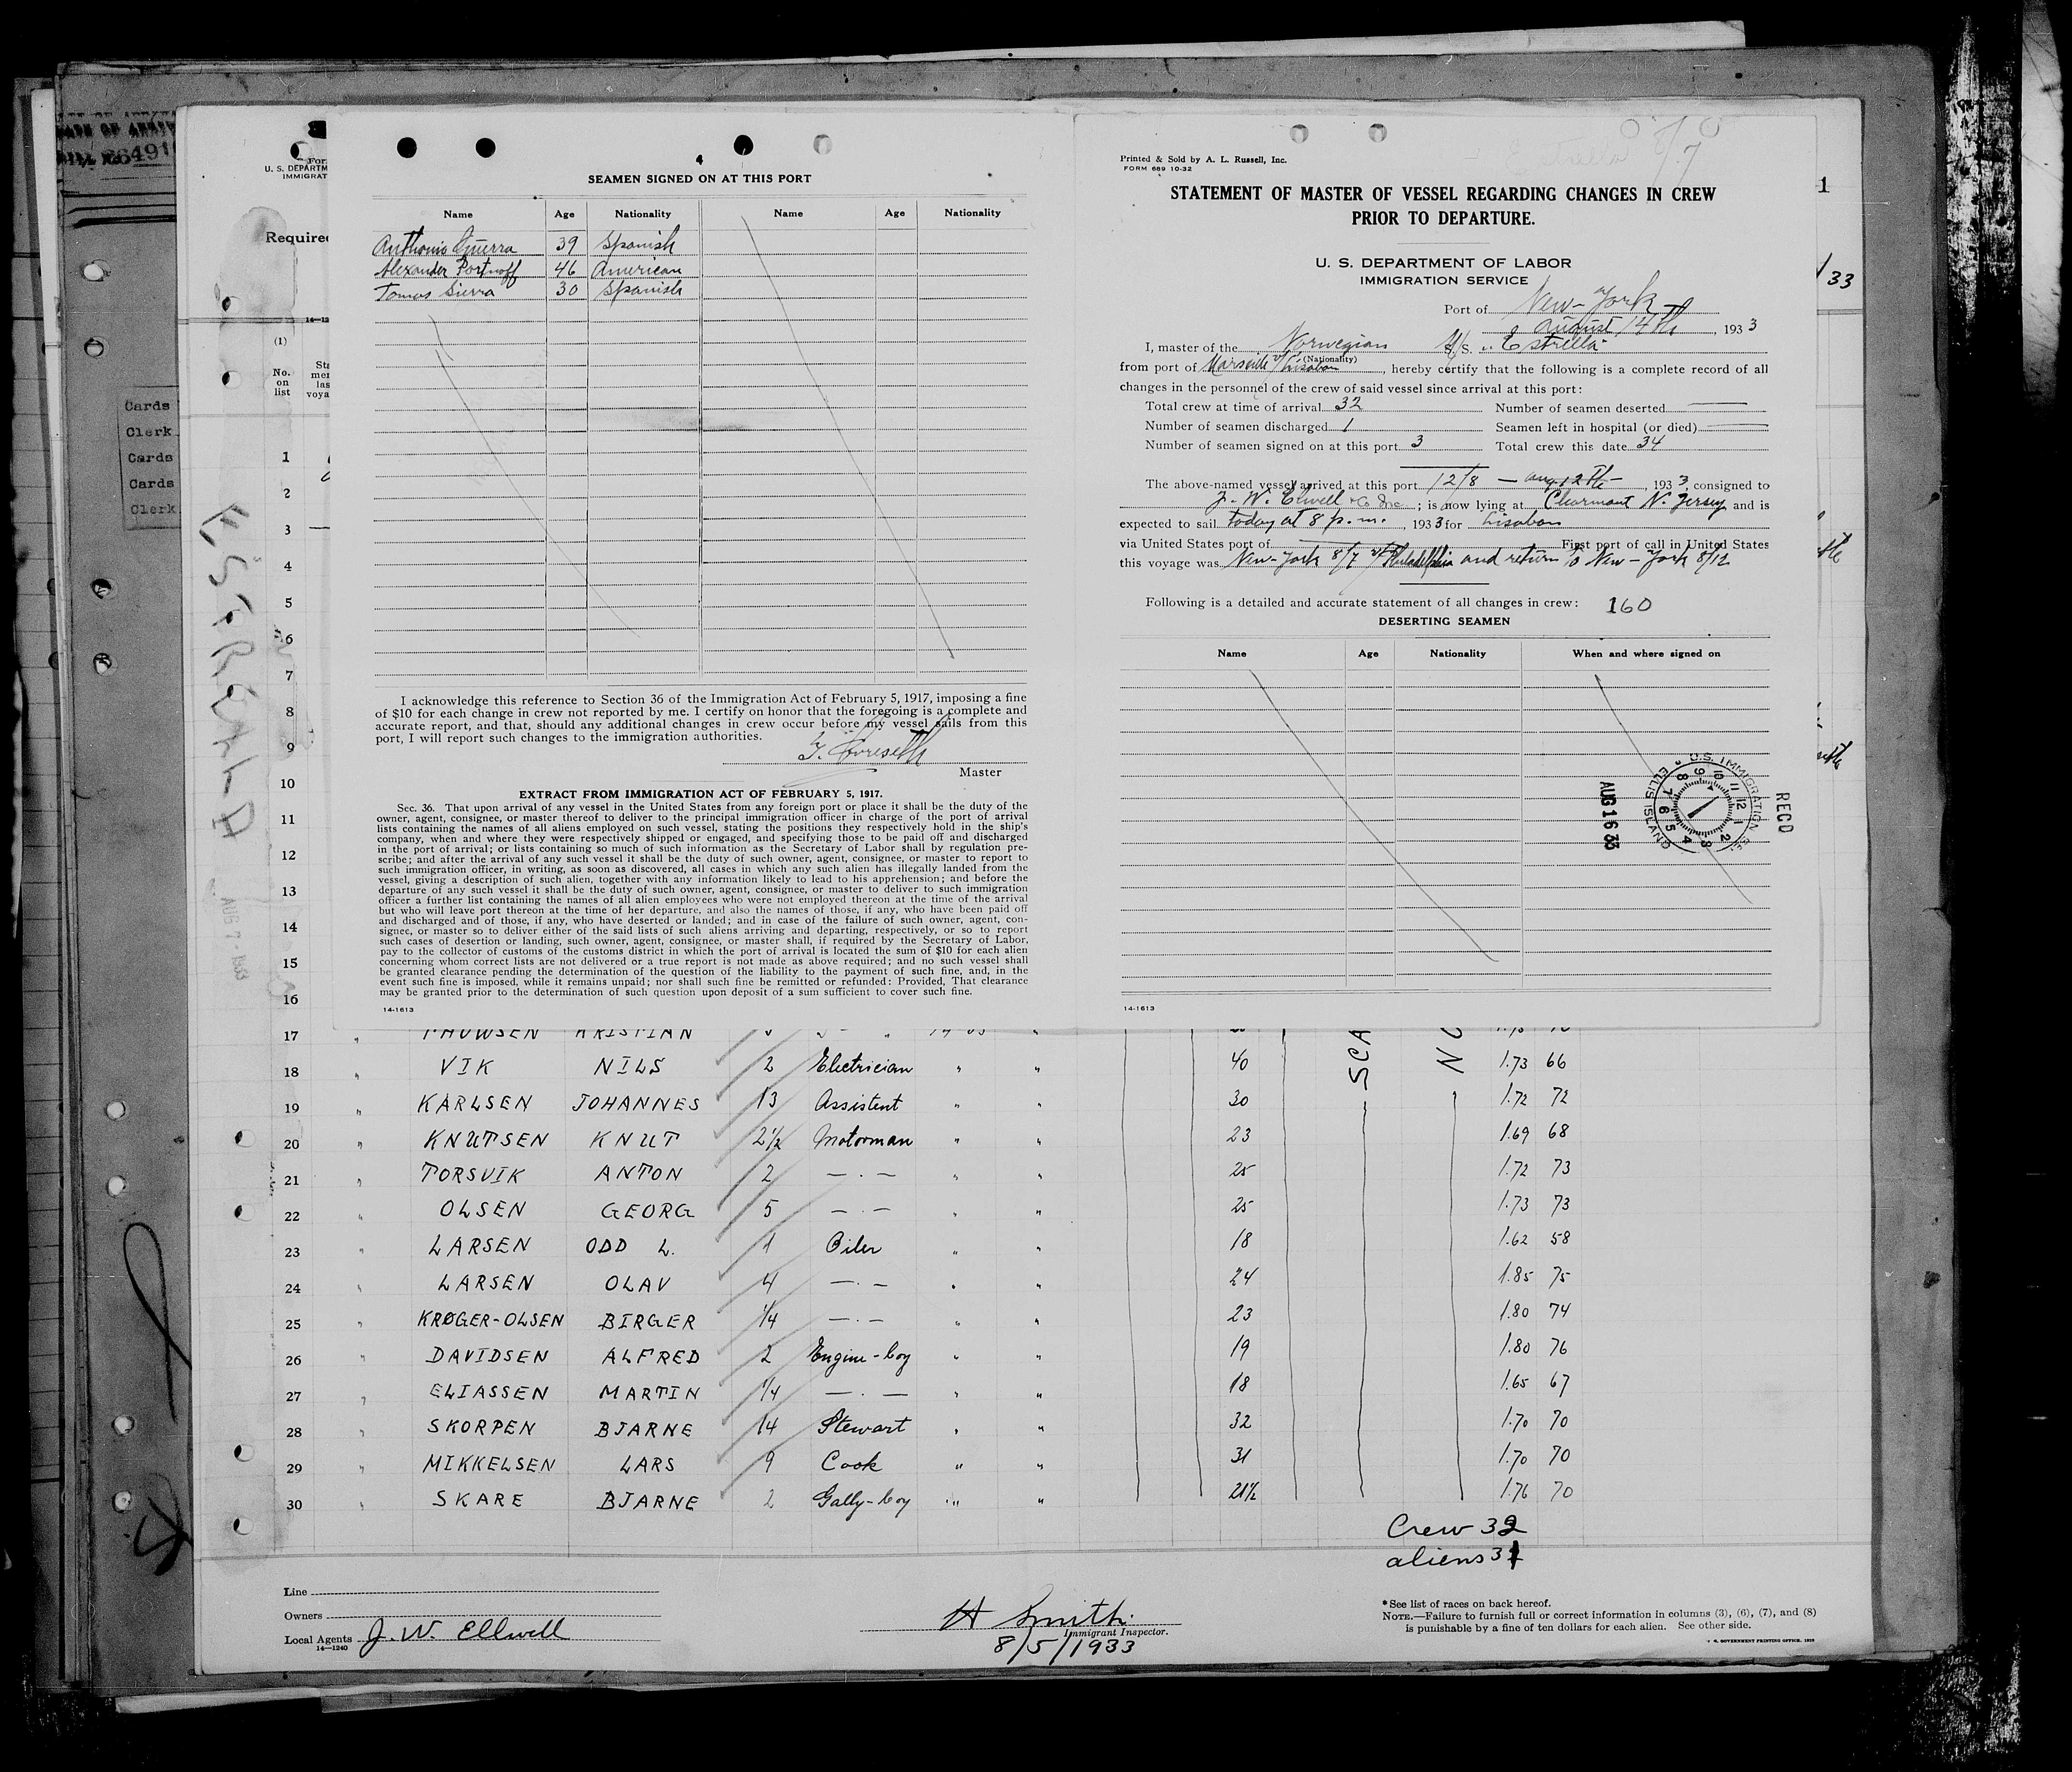 4
SEAMEN SIGNED ON AT THIS PORT
Name Age Nationality Name Age Nationality
Anthonio Guerra 39 Spanish
Alexander Portnoff 46 American
Tomas Sierra 30 Spanish
I acknowledge this reference to Section 36 of the Immigration Act of February 5, 1917, imposing a fine
of $10 for each change in crew not reported by me. I certify on honor that the foregoing is a complete and
accurate report, and that, should any additional changes in crew occur before my vessel sails from this
port, I will report such changes to the immigration authorities.
Master
EXTRACT FROM IMMIGRATION ACT OF FEBRUARY 5, 1917.
Sec. 36. That upon arrival of any vessel in the United States from any foreign port or place it shall be the duty of the
owner, agent, consignee, or master thereof to deliver to the principal immigration officer in charge of the port of arrival
lists containing the names of all aliens employed on such vessel, stating the positions they respectively hold in the ship's
company, when and where they were respectively shipped or engaged, and specifying those to be paid off and discharged
in the port of arrival; or lists containing so much of such information as the Secretary of Labor shall by regulation pre-
scribe; and after the arrival of any such vessel it shall be the duty of such owner, agent, consignee, or master to report to
such immigration officer, in writing, as soon as discovered, all cases in which any such alien has illegally landed from the
vessel, giving a description of such alien, together with any information likely to lead to his apprehension; and before the
departure of any such vessel it shall be the duty of such owner, agent, consignee, or master to deliver to such immigration
officer a further list containing the names of all alien employees who were not employed thereon at the time of the arrival
but who will leave port thereon at the time of her departure, and also the names of those, if any, who have been paid off
and discharged and of those, if any, who have deserted or landed; and in case of the failure of such owner, agent, con-
signee, or master so to deliver either of the said lists of such aliens arriving and departing, respectively, or so to report
such cases of desertion or landing, such owner, agent, consignee, or master shall, if required by the Secretary of Labor,
pay to the collector of customs of the customs district in which the port of arrival is located the sum of $10 for each alien
concerning whom correct lists are not delivered or a true report is not made as above required; and no such vessel shall
be granted clearance pending the determination of the question of the liability to the payment of such fine, and, in the
event such fine is imposed, while it remains unpaid; nor shall such fine be remitted or refunded: Provided, That clearance
may be granted prior to the determination of such question upon deposit of a sum sufficient to cover such fine.
14-1613
Printed & Sold by A. L. Russell, Inc.
FORM 689 10-32
STATEMENT OF MASTER OF VESSEL REGARDING CHANGES IN CREW
PRIOR TO DEPARTURE.
U. S. DEPARTMENT OF LABOR
IMMIGRATION SERVICE
Port of New-York
August 14th, 1933
I, master of the Norwegian S. "Estrella"
(Nationality)
from port of Marseille v/ Lisabon, hereby certify that the following is a complete record of all
changes in the personnel of the crew of said vessel since arrival at this port:
Total crew at time of arrival 32 Number of seamen deserted
Number of seamen discharged 1 Seamen left in hospital (or died)
Number of seamen signed on at this port 3 Total crew this date 34
The above-named vessel arrived at this port 12/8 — Aug. 12th —, 1933, consigned to
J. W. Elwell & Co Inc.; is now lying at Clearmont N. Jersey and is
expected to sail today at 8 p.m., 1933 for Lisabon
via United States port of First port of call in United States
this voyage was New-York 8/7 v/ Philadelphia and return to New-York 8/12
Following is a detailed and accurate statement of all changes in crew: 160
DESERTING SEAMEN
Name Age Nationality When and where signed on
RECD
U.S. IMMIGRATION
ELLIS ISLAND
AUG 16 33
14-1613
U. S. DEPARTM
IMMIGRAT
Required
(1)
No.
on
list
Cards
Clerk
Cards
Cards
Clerk
ESTRELLA
AUG 7 - 1933
1
33
1
2
3
4
5
6
7
8
9
10
11
12
13
14
15
16
17 " PAUWSEN KRISTIAN
18 " VIK NILS 2 Electrician " " 40 1.73 66
19 " KARLSEN JOHANNES 13 Assistent " " 30 1.72 72
20 " KNUTSEN KNUT 2½ Motorman " " 23 1.69 68
21 " TORSVIK ANTON 2 —·— " " 25 1.72 73
22 " OLSEN GEORG 5 —·— " " 25 1.73 73
23 " LARSEN ODD L. 1 Oiler " " 18 1.62 58
24 " LARSEN OLAV 4 —·— " " 24 1.85 75
25 " KRØGER-OLSEN BIRGER ¼ —·— " " 23 1.80 74
26 " DAVIDSEN ALFRED 2 Engine-boy " " 19 1.80 76
27 " ELIASSEN MARTIN ¼ —·— " " 18 1.65 67
28 " SKORPEN BJARNE 14 Stewart " " 32 1.70 70
29 " MIKKELSEN LARS 9 Cook " " 31 1.70 70
30 " SKARE BJARNE 2 Gally-boy " " 21½ 1.76 70
SCA
Crew 32
aliens 31
Line
Owners
Local Agents J. W. Ellwell
14—1240
H Smith
Immigrant Inspector.
8/5/1933
*See list of races on back hereof.
NOTE.—Failure to furnish full or correct information in columns (3), (6), (7), and (8)
is punishable by a fine of ten dollars for each alien. See other side.